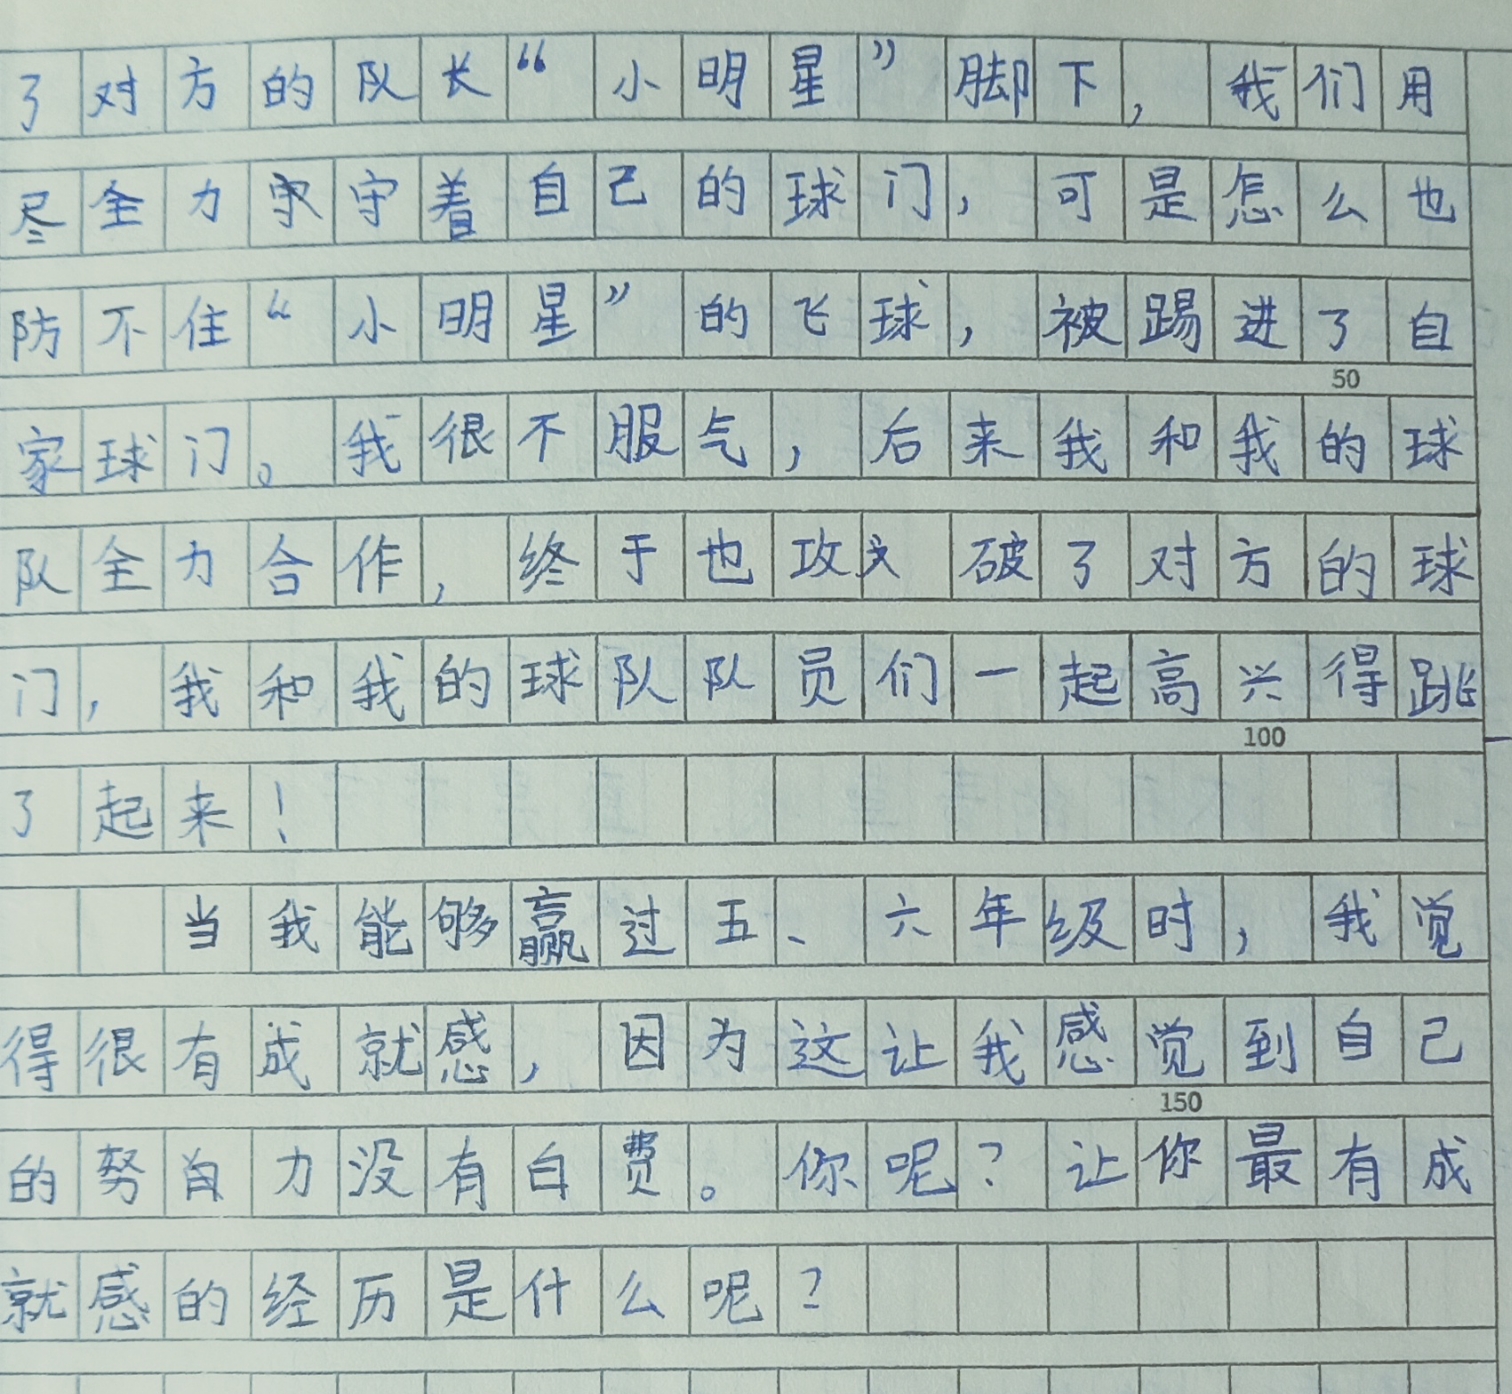 了对方的队长“小明星”脚下，我们用
尽全力守着自己的球门，可是怎么也
防不住“小明星”的飞球，被踢进了自
50
家球门。我很不服气，后来我和我的球
队全力合作，终于也攻破了对方的球
门，我和我的球队队员们一起高兴得跳
100
了起来！
当我能够赢过五、六年级时，我觉
得很有成就感，因为这让我感觉到自己
150
的努力没有白费。你呢？让你最有成
就感的经历是什么呢？